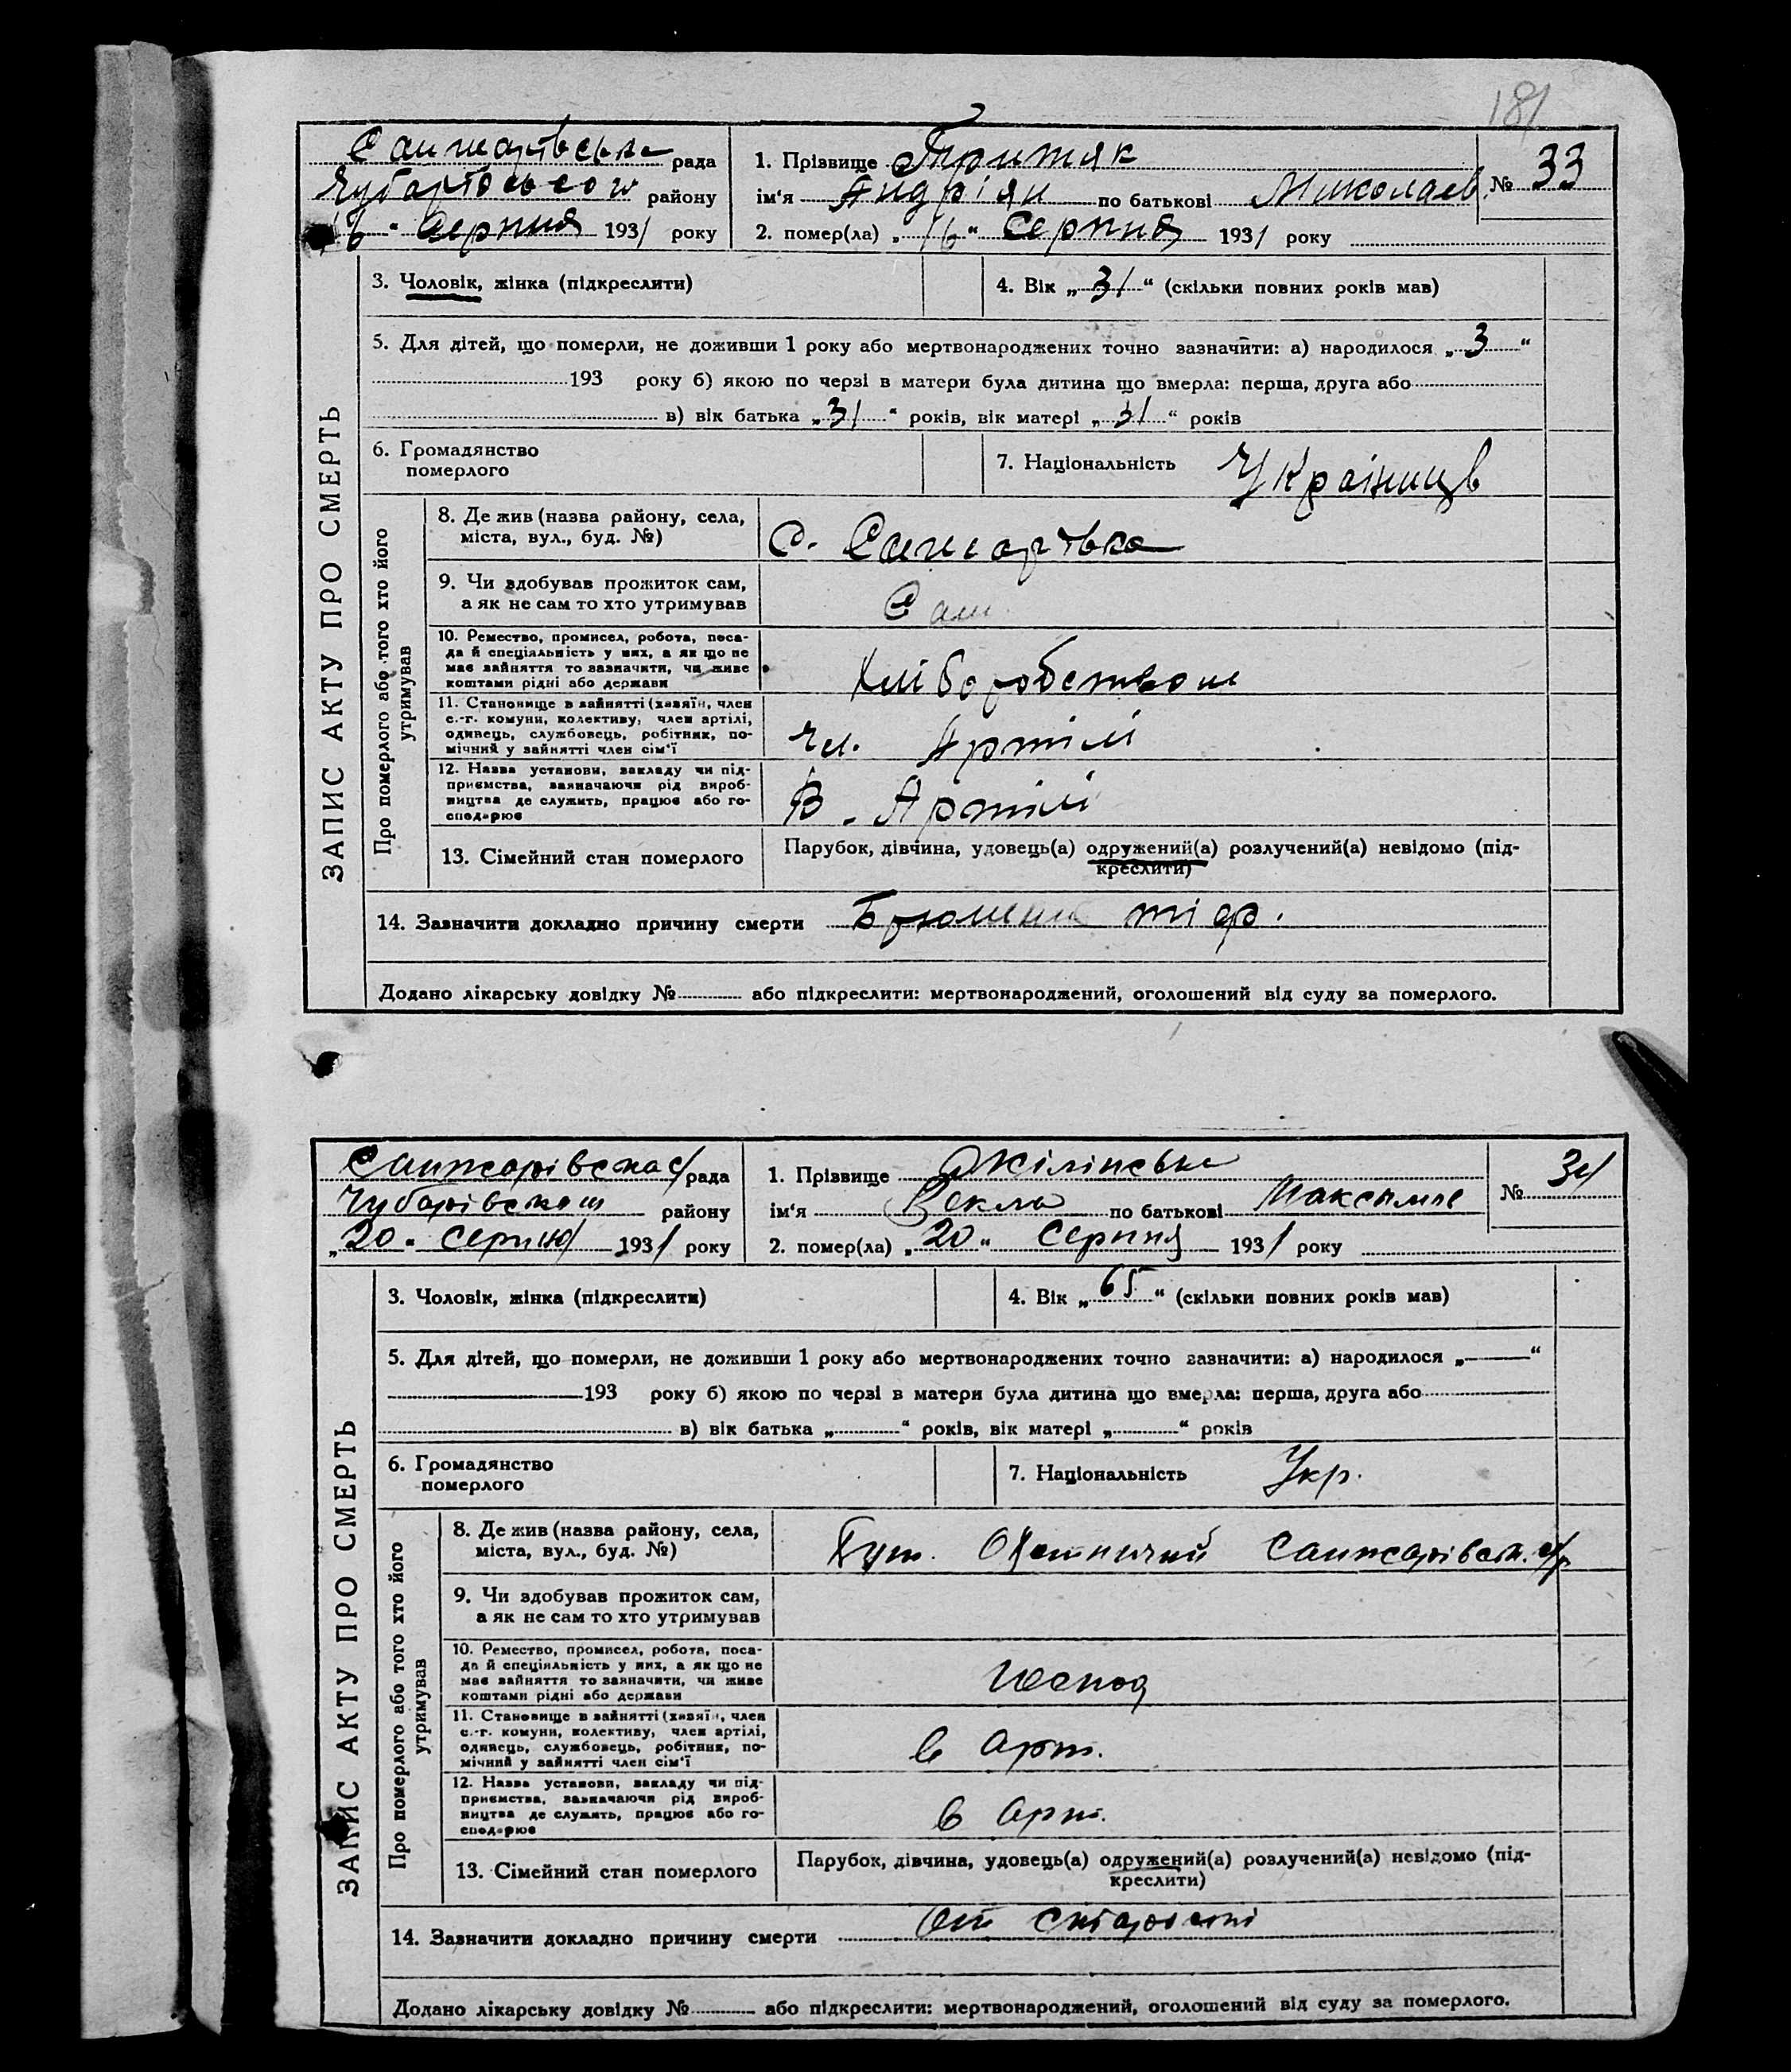 181
Санжарівська рада
Чубарівського району
"16" Серпня 1931 року
1. Прізвище Притяк
ім'я Андріян по батькові Миколаєв
№ 33
2. помер(ла) „16" Серпня 1931 року
ЗАПИС АКТУ ПРО СМЕРТЬ
3. Чоловік, жінка (підкреслити)
4. Вік „31" (скільки повних років мав)
5. Для дітей, що померли, не доживши 1 року або мертвонароджених точно зазначити: а) народилося „3"
193 року б) якою по черзі в матери була дитина що вмерла: перша, друга або
в) вік батька „31" років, вік матері „31" років
6. Громадянство
померлого
7. Національність Українць
Про померлого або того хто його
утримував
8. Де жив (назва району, села,
міста, вул., буд. №)
с. Санжарівка
9. Чи здобував прожиток сам,
а як не сам то хто утримував
Сам
10. Ремество, промисел, робота, поса-
да й спеціяльність у них, а як що не
має зайняття то зазначити, чи живе
коштами рідні або держави
Хліборобством
11. Становище в зайнятті (хазяїн, член
с.-г. комуни, колективу, член артілі,
одинець, службовець, робітник, по-
мічний у зайнятті член сім'ї
Чл. Артілі
12. Назва установи, закладу чи під-
приємства, зазначаючи рід вироб-
ництва де служить, працює або го-
сподарює
В. Артілі
13. Сімейний стан померлого
Парубок, дівчина, удовець(а) одружений(а) розлучений(а) невідомо (під-
креслити)
14. Зазначити докладно причину смерти Брюшний тіф.
Додано лікарську довідку № або підкреслити: мертвонароджений, оголошений від суду за померлого.
Санжарівська с/рада
Чубарівськаго району
„20" Серпня 1931 року
1. Прізвище Жілінська
ім'я Векла по батькові Максымов
№ 34
2. помер(ла) „20" Серпня 1931 року
ЗАПИС АКТУ ПРО СМЕРТЬ
3. Чоловік, жінка (підкреслити)
4. Вік „65" (скільки повних років мав)
5. Для дітей, що померли, не доживши 1 року або мертвонароджених точно зазначити: а) народилося „ "
193 року б) якою по черзі в матери була дитина що вмерла: перша, друга або
в) вік батька „ " років, вік матері „ " років
6. Громадянство
померлого
7. Національність Укр.
Про померлого або того хто його
утримував
8. Де жив (назва району, села,
міста, вул., буд. №)
Хут. Охотничий Санжарівськ. с/р
9. Чи здобував прожиток сам,
а як не сам то хто утримував
10. Ремество, промисел, робота, поса-
да й спеціяльність у них, а як що не
має зайняття то зазначити, чи живе
коштами рідні або держави
Господ
11. Становище в зайнятті (хазяїн, член
с.-г. комуни, колективу, член артілі,
одинець, службовець, робітник, по-
мічний у зайнятті член сім'ї
в арт.
12. Назва установи, закладу чи під-
приємства, зазначаючи рід вироб-
ництва де служить, працює або го-
сподарює
в арт.
13. Сімейний стан померлого
Парубок, дівчина, удовець(а) одружений(а) розлучений(а) невідомо (під-
креслити)
14. Зазначити докладно причину смерти От старості
Додано лікарську довідку № або підкреслити: мертвонароджений, оголошений від суду за померлого.